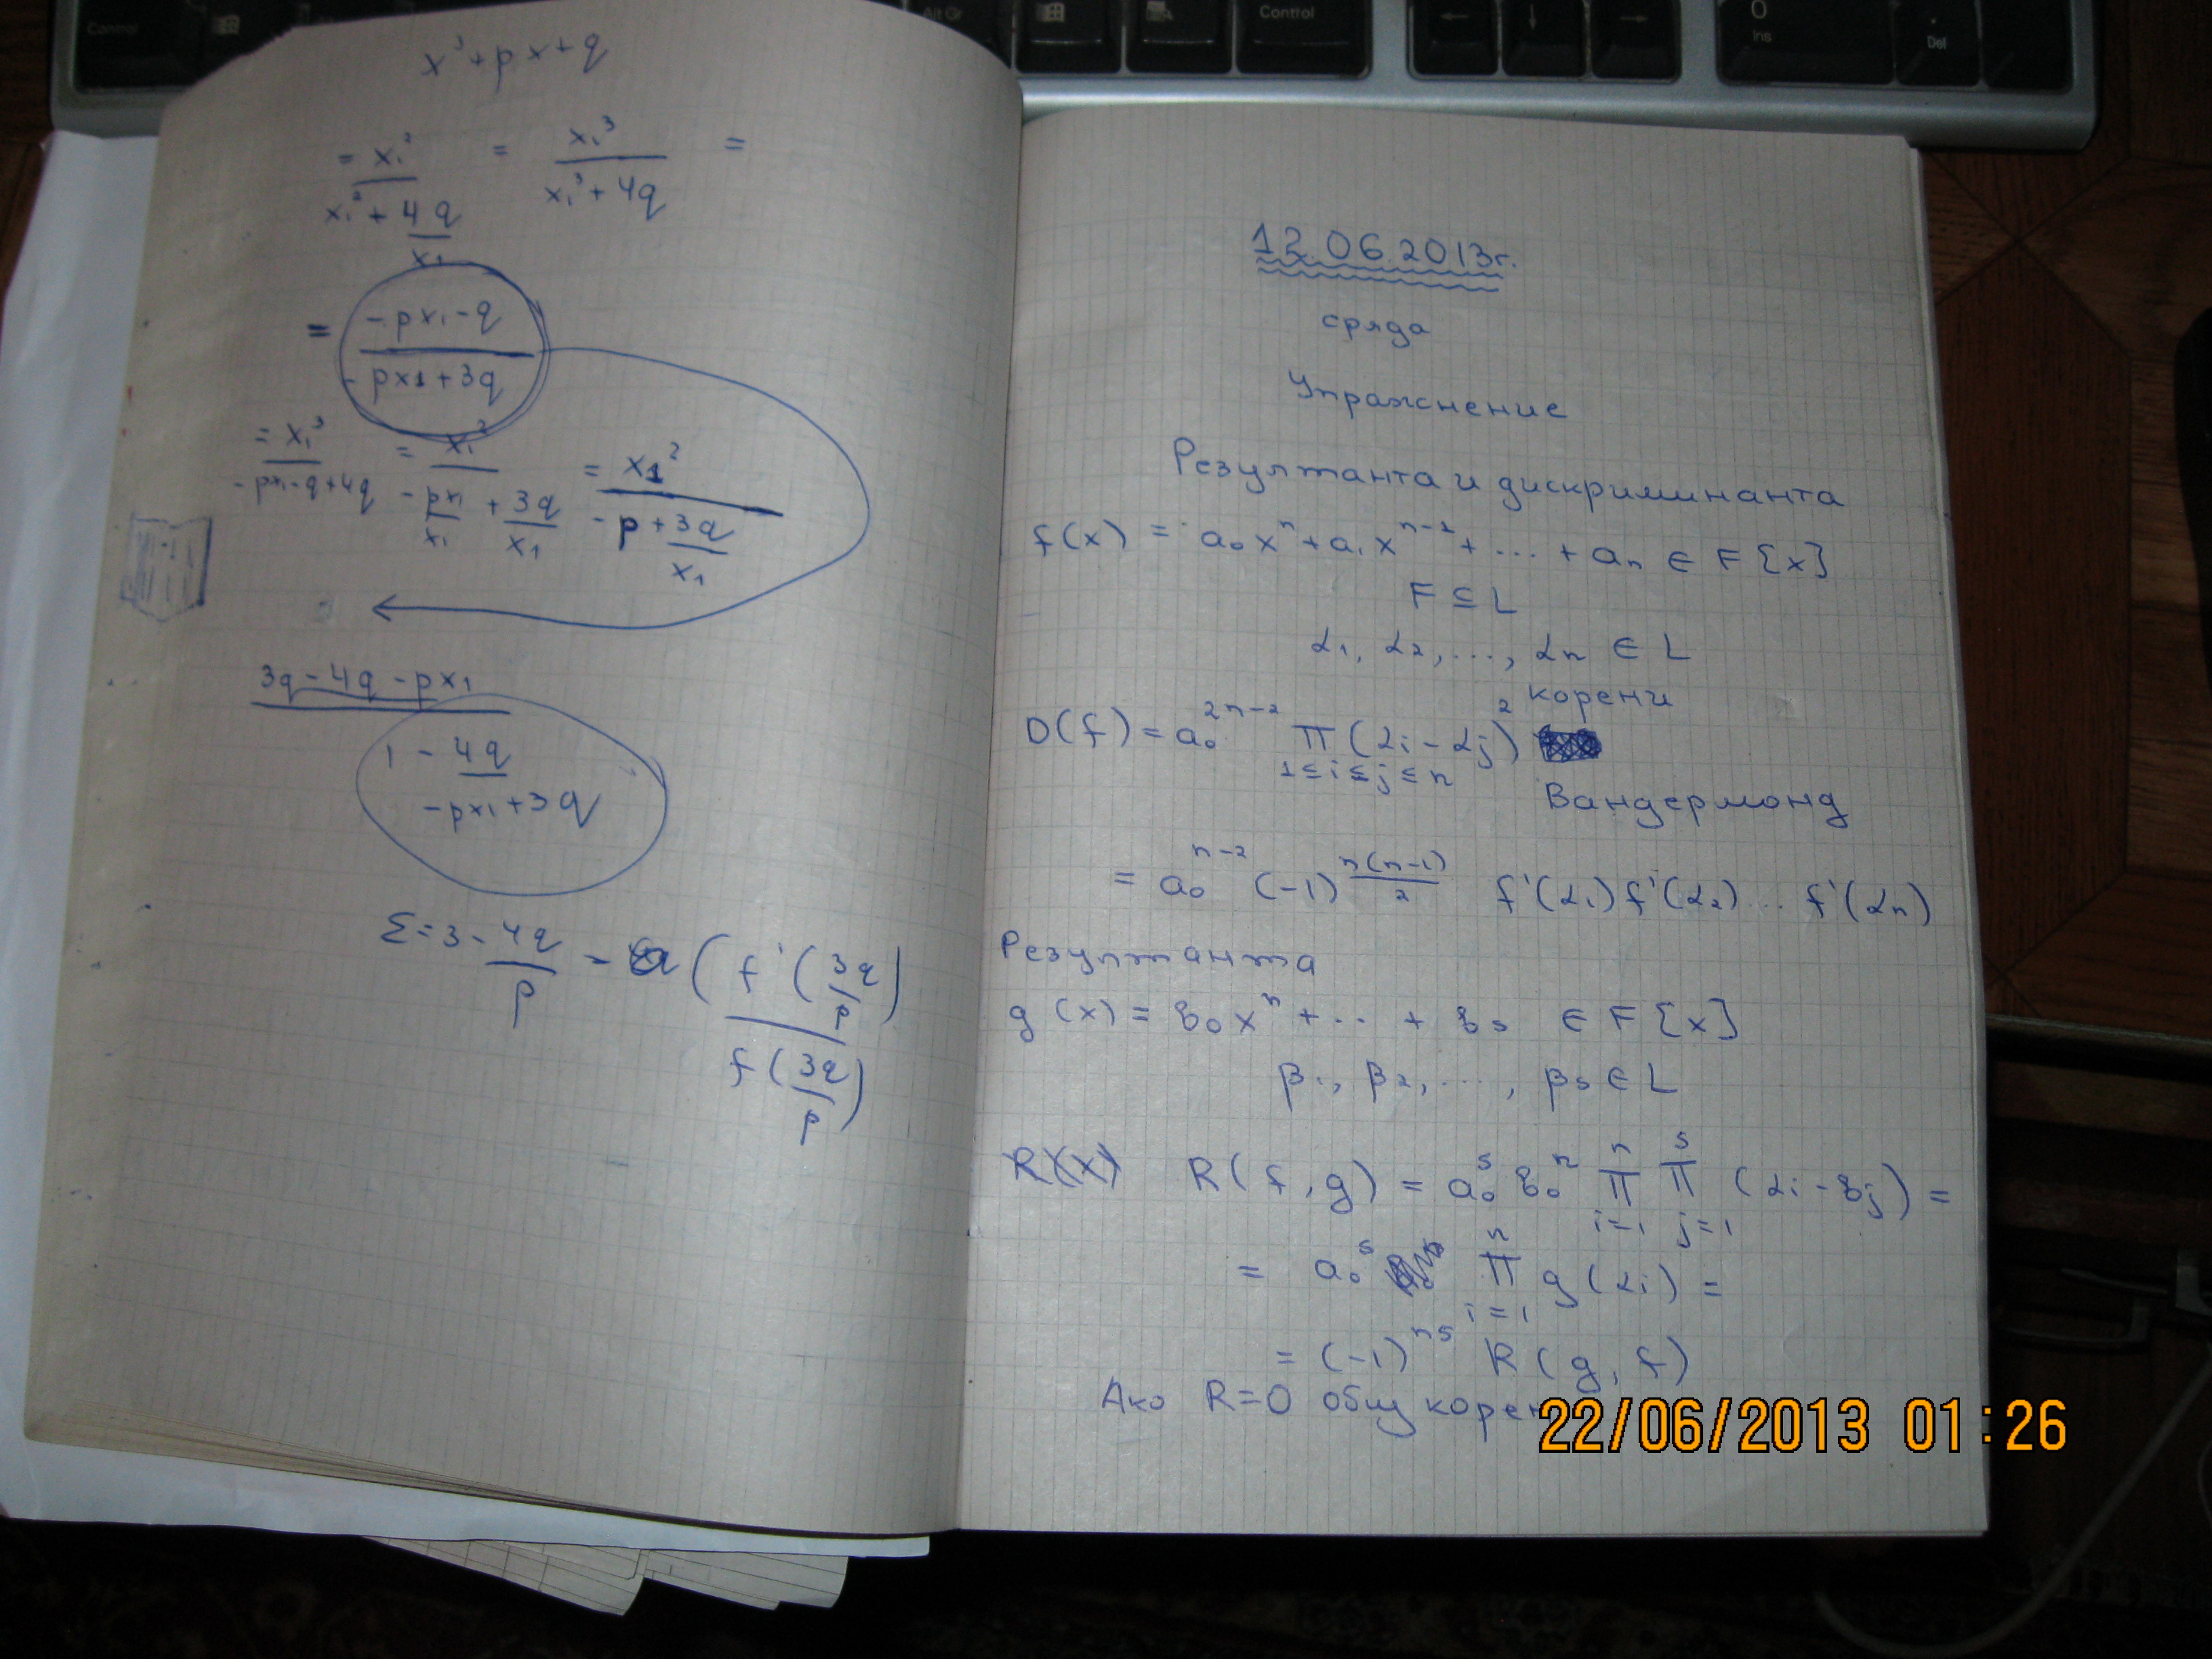 Control
Alt Gr
Control
← ↓ →
0
Ins
.
Del
x³ + px + q
= x₁² / (x₁² + 4q/x₁) = x₁³ / (x₁³ + 4q) =
= (-px₁ - q) / (-px1 + 3q)
= x₁³ / (-px₁ - q + 4q) = x₁² / (-px₁/x₁ + 3q/x1) = x1² / (-p + 3q/x1)
3q - 4q - px1
1 - 4q / (-px₁ + 3q)
Σ = 3 - 4q/p - (f'(3q/p) / f(3q/p))
12.06.2013г.
сряда
Упражнение
Резултанта и дискриминанта
f(x) = a₀xⁿ + a₁xⁿ⁻¹ + ... + aₙ ∈ F[x]
F ⊆ L
α₁, α₂, ..., αₙ ∈ L
корени
D(f) = a₀²ⁿ⁻² ∏ (αᵢ - αⱼ)²
1≤i≤j≤n
Вандермонд
= a₀ⁿ⁻² (-1)^(n(n-1)/2) f'(α₁) f'(α₂) ... f'(αₙ)
Резултанта
g(x) = b₀xⁿ + ... + bₛ ∈ F[x]
β₁, β₂, ..., βₛ ∈ L
R(x) R(f, g) = a₀ˢ b₀ⁿ ∏ᵢ₌₁ⁿ ∏ⱼ₌₁ˢ (αᵢ - bⱼ) =
= a₀ˢ ∏ᵢ₌₁ⁿ g(αᵢ) =
= (-1)ⁿˢ R(g, f)
Ако R=0 общ корен
22/06/2013 01:26